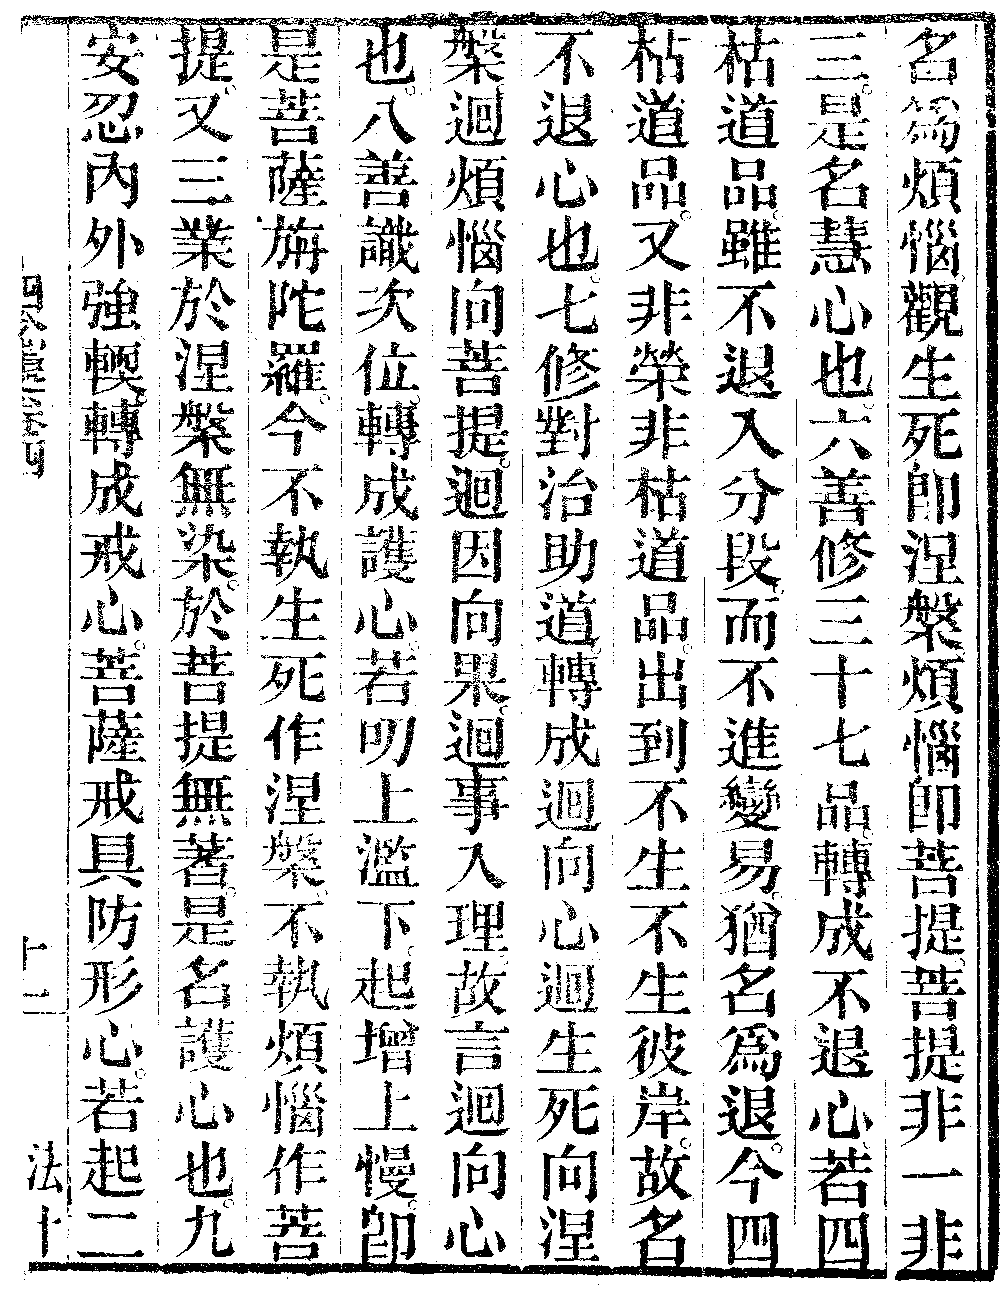 名爲煩惱觀生死卽涅槃煩惱卽菩提菩提非一非
三是名慧心也六善修三十七品轉成不退心若四
枯道品雖不退入分段而不進變易猶名爲退今四
枯道品又非榮非枯道品出到不生不生彼岸故名
不退心也七修對治助道轉成迴向心迴生死向涅
槃迴煩惱向菩提迴因向果迴事入理故言迴向心
也八善識次位轉成護心若叨上濫下起增上慢卽
是菩薩旃陀羅今不執生死作涅槃不執煩惱作菩
提又三業於涅槃無染於菩提無著是名護心也九
安忍內外強輭轉成戒心菩薩戒具防形心若起二
卷四
十一
法十